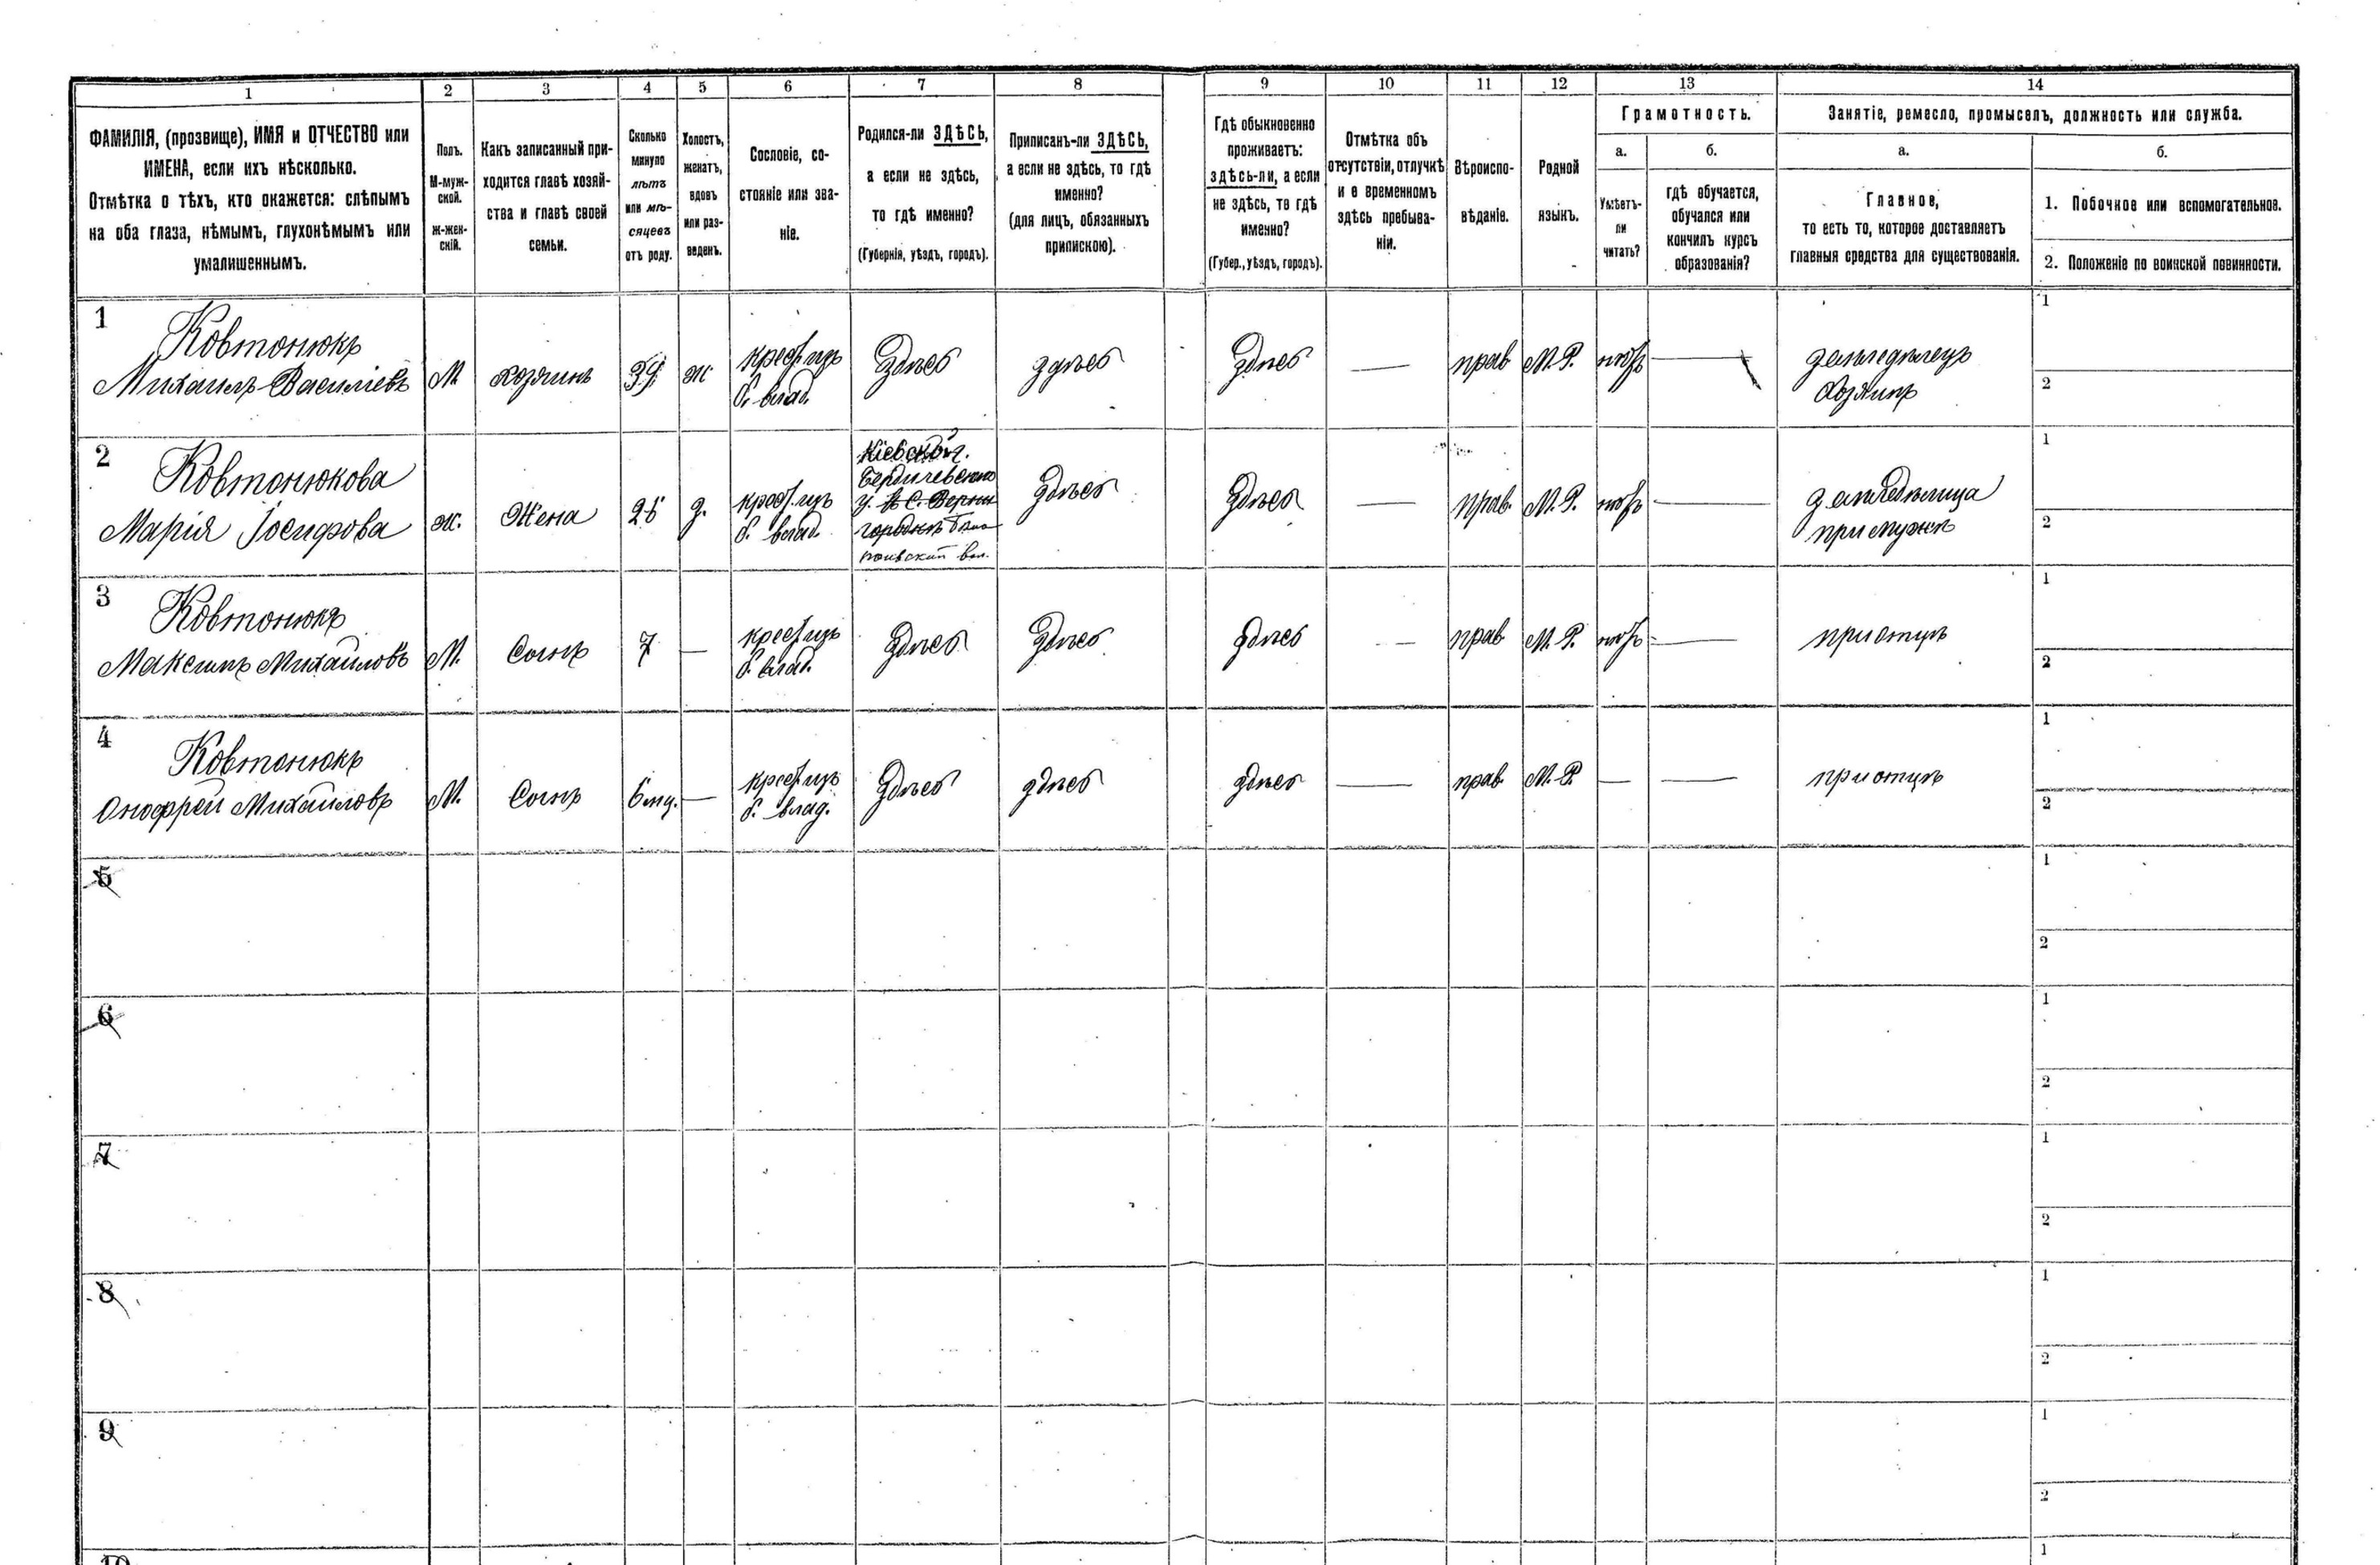 1 2 3 4 5 6 7 8 9 10 11 12 13 14
ФАМИЛІЯ, (прозвище), ИМЯ и ОТЧЕСТВО или
ИМЕНА, если ихъ нѣсколько.
Отмѣтка о тѣхъ, кто окажется: слѣпымъ
на оба глаза, нѣмымъ, глухонѣмымъ или
умалишеннымъ.
Полъ.
М-муж-
ской.
ж-жен-
скій.
Какъ записанный при-
ходится главѣ хозяй-
ства и главѣ своей
семьи.
Сколько
минуло
лѣтъ
или мѣ-
сяцевъ
отъ роду.
Холостъ,
женатъ,
вдовъ
или раз-
веденъ.
Сословіе, со-
стояніе или зва-
ніе.
Родился-ли ЗДѢСЬ,
а если не здѣсь,
то гдѣ именно?
(Губернія, уѣздъ, городъ).
Приписанъ-ли ЗДѢСЬ,
а если не здѣсь, то гдѣ
именно?
(для лицъ, обязанныхъ
припискою).
Гдѣ обыкновенно
проживаетъ:
здѣсь-ли, а если
не здѣсь, то гдѣ
именно?
(Губер., уѣздъ, городъ).
Отмѣтка объ
отсутствіи, отлучкѣ
и о временномъ
здѣсь пребыва-
ніи.
Вѣроиспо-
вѣданіе.
Родной
языкъ.
Грамотность.
а.
Умѣетъ-
ли
читать?
б.
гдѣ обучается,
обучался или
кончилъ курсъ
образованія?
Занятіе, ремесло, промыселъ, должность или служба.
а.
Главное,
то есть то, которое доставляетъ
главныя средства для существованія.
б.
1. Побочное или вспомогательное.
2. Положеніе по воинской повинности.
1
Ковтонюкъ
Михаилъ Василіевъ
М
хозяинъ
39
ж
крест. изъ
б. влад.
Здѣсь
здѣсь
Здѣсь
—
прав
М. Р.
нѣтъ
—
земледѣлецъ
Хозяинъ
1
2
2
Ковтонюкова
Марія Іосифова
ж.
Жена
з.
крест. изъ
б. влад.
Кіевской г.
Бердичевскаго
у.
вол.
Здѣсь
Здѣсь
—
прав.
М. Р.
нѣтъ
—
земледѣлица
при мужѣ
1
2
3
Ковтонюкъ
Максимъ Михайловъ
М.
Сынъ
7
—
крест. изъ
б. влад.
Здѣсь
Здѣсь
Здѣсь
—
прав
М. Р.
нѣтъ
—
при отцѣ
1
2
4
Ковтонюкъ
Онофрей Михайловъ
М.
Сынъ
6 мц.
—
крест. изъ
б. влад.
Здѣсь
здѣсь
здѣсь
—
прав
М. Р.
—
—
при отцѣ
1
2
5
1
2
6
1
2
7
1
2
8
1
2
9
1
2
10
1